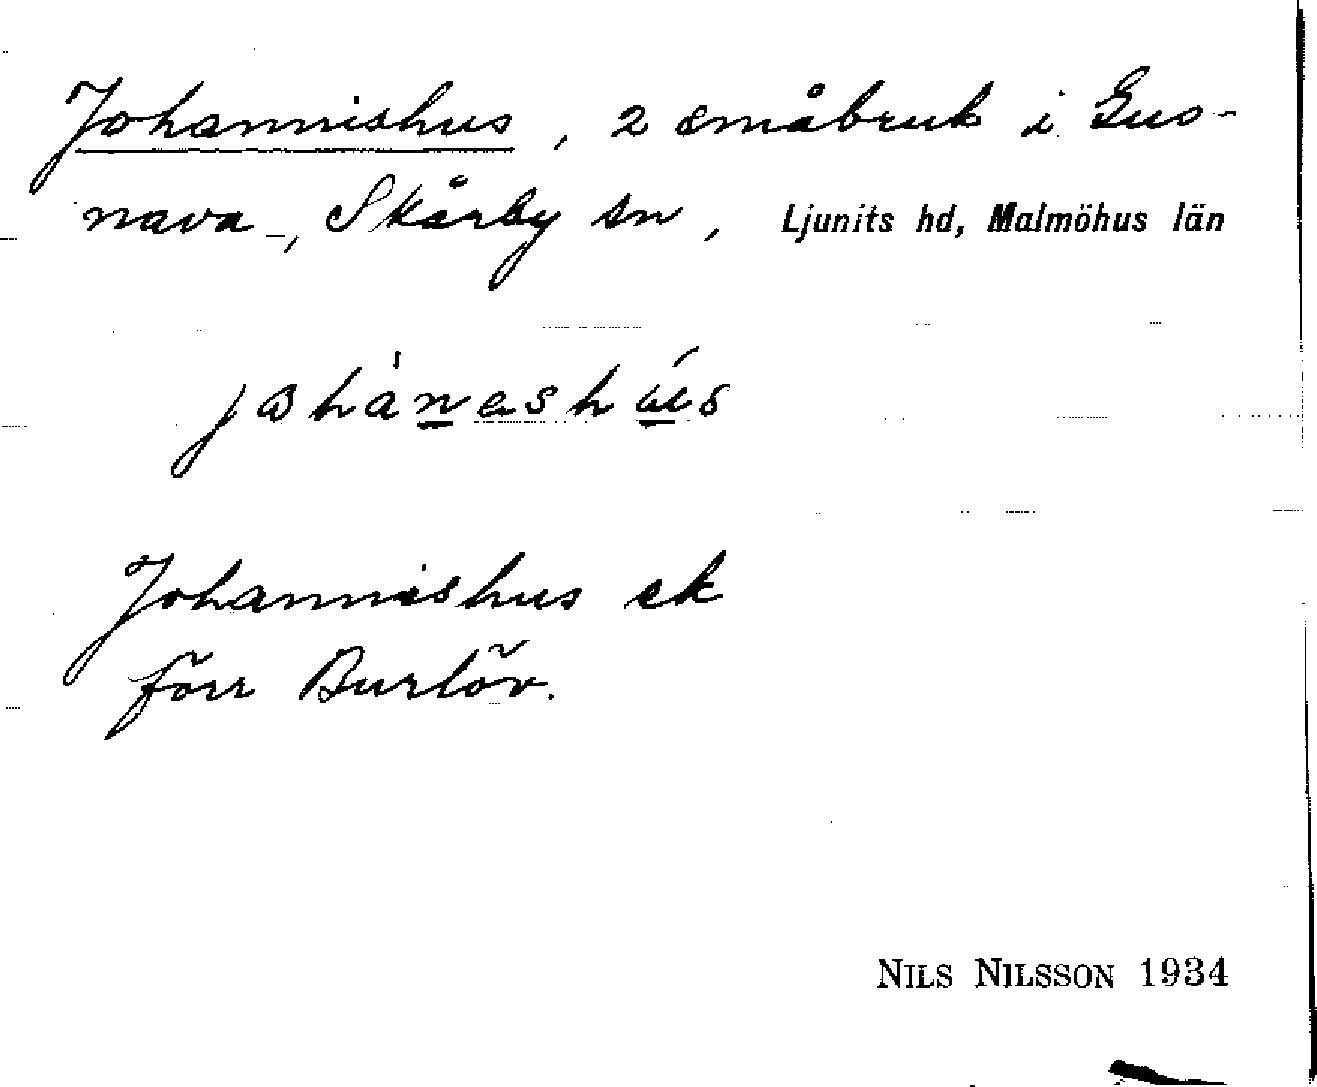 Johannishus, 2 småbruk i Gus-
nava, Skårby sn, Ljunits hd, Malmöhus län
Johannishus ek
förr Burlöv.
NILS NILSSON 1934